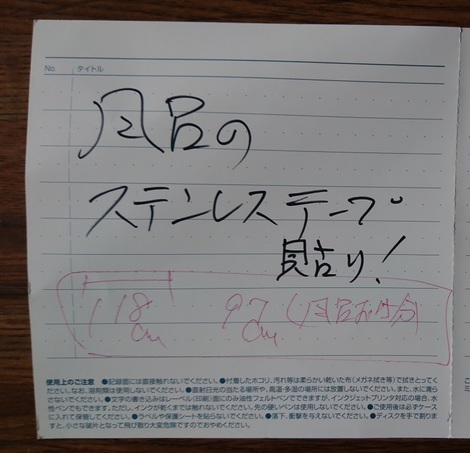 No. タイトル
風呂の
ステンレステープ
貼り!
118cm 92cm (風呂
使用上のご注意 ●記録面には直接触れないでください。●付着したホコリ、汚れ等は柔らかい乾いた布(メガネ拭き等)で拭きとってく
ださい。なお、溶剤類は使用しないでください。●直射日光の当たる場所や、高温・多湿の場所には放置しないでください。また、水に濡ら
さないでください。●文字の書き込みはレーベル(印刷)面にのみ油性フェルトペンでできますが、インクジェットプリンタ対応の場合、水
性ペンでもできます。ただし、インクが乾くまでは触れないでください。先の硬いペンは使用しないでください。●ご使用後は必ずケース
に入れて保管してください。●ラベルや保護シートを貼らないでください。●落下、衝撃を与えないでください。●ディスクを手で割りま
すと、小さな破片となって飛び散り大変危険ですのでおやめください。